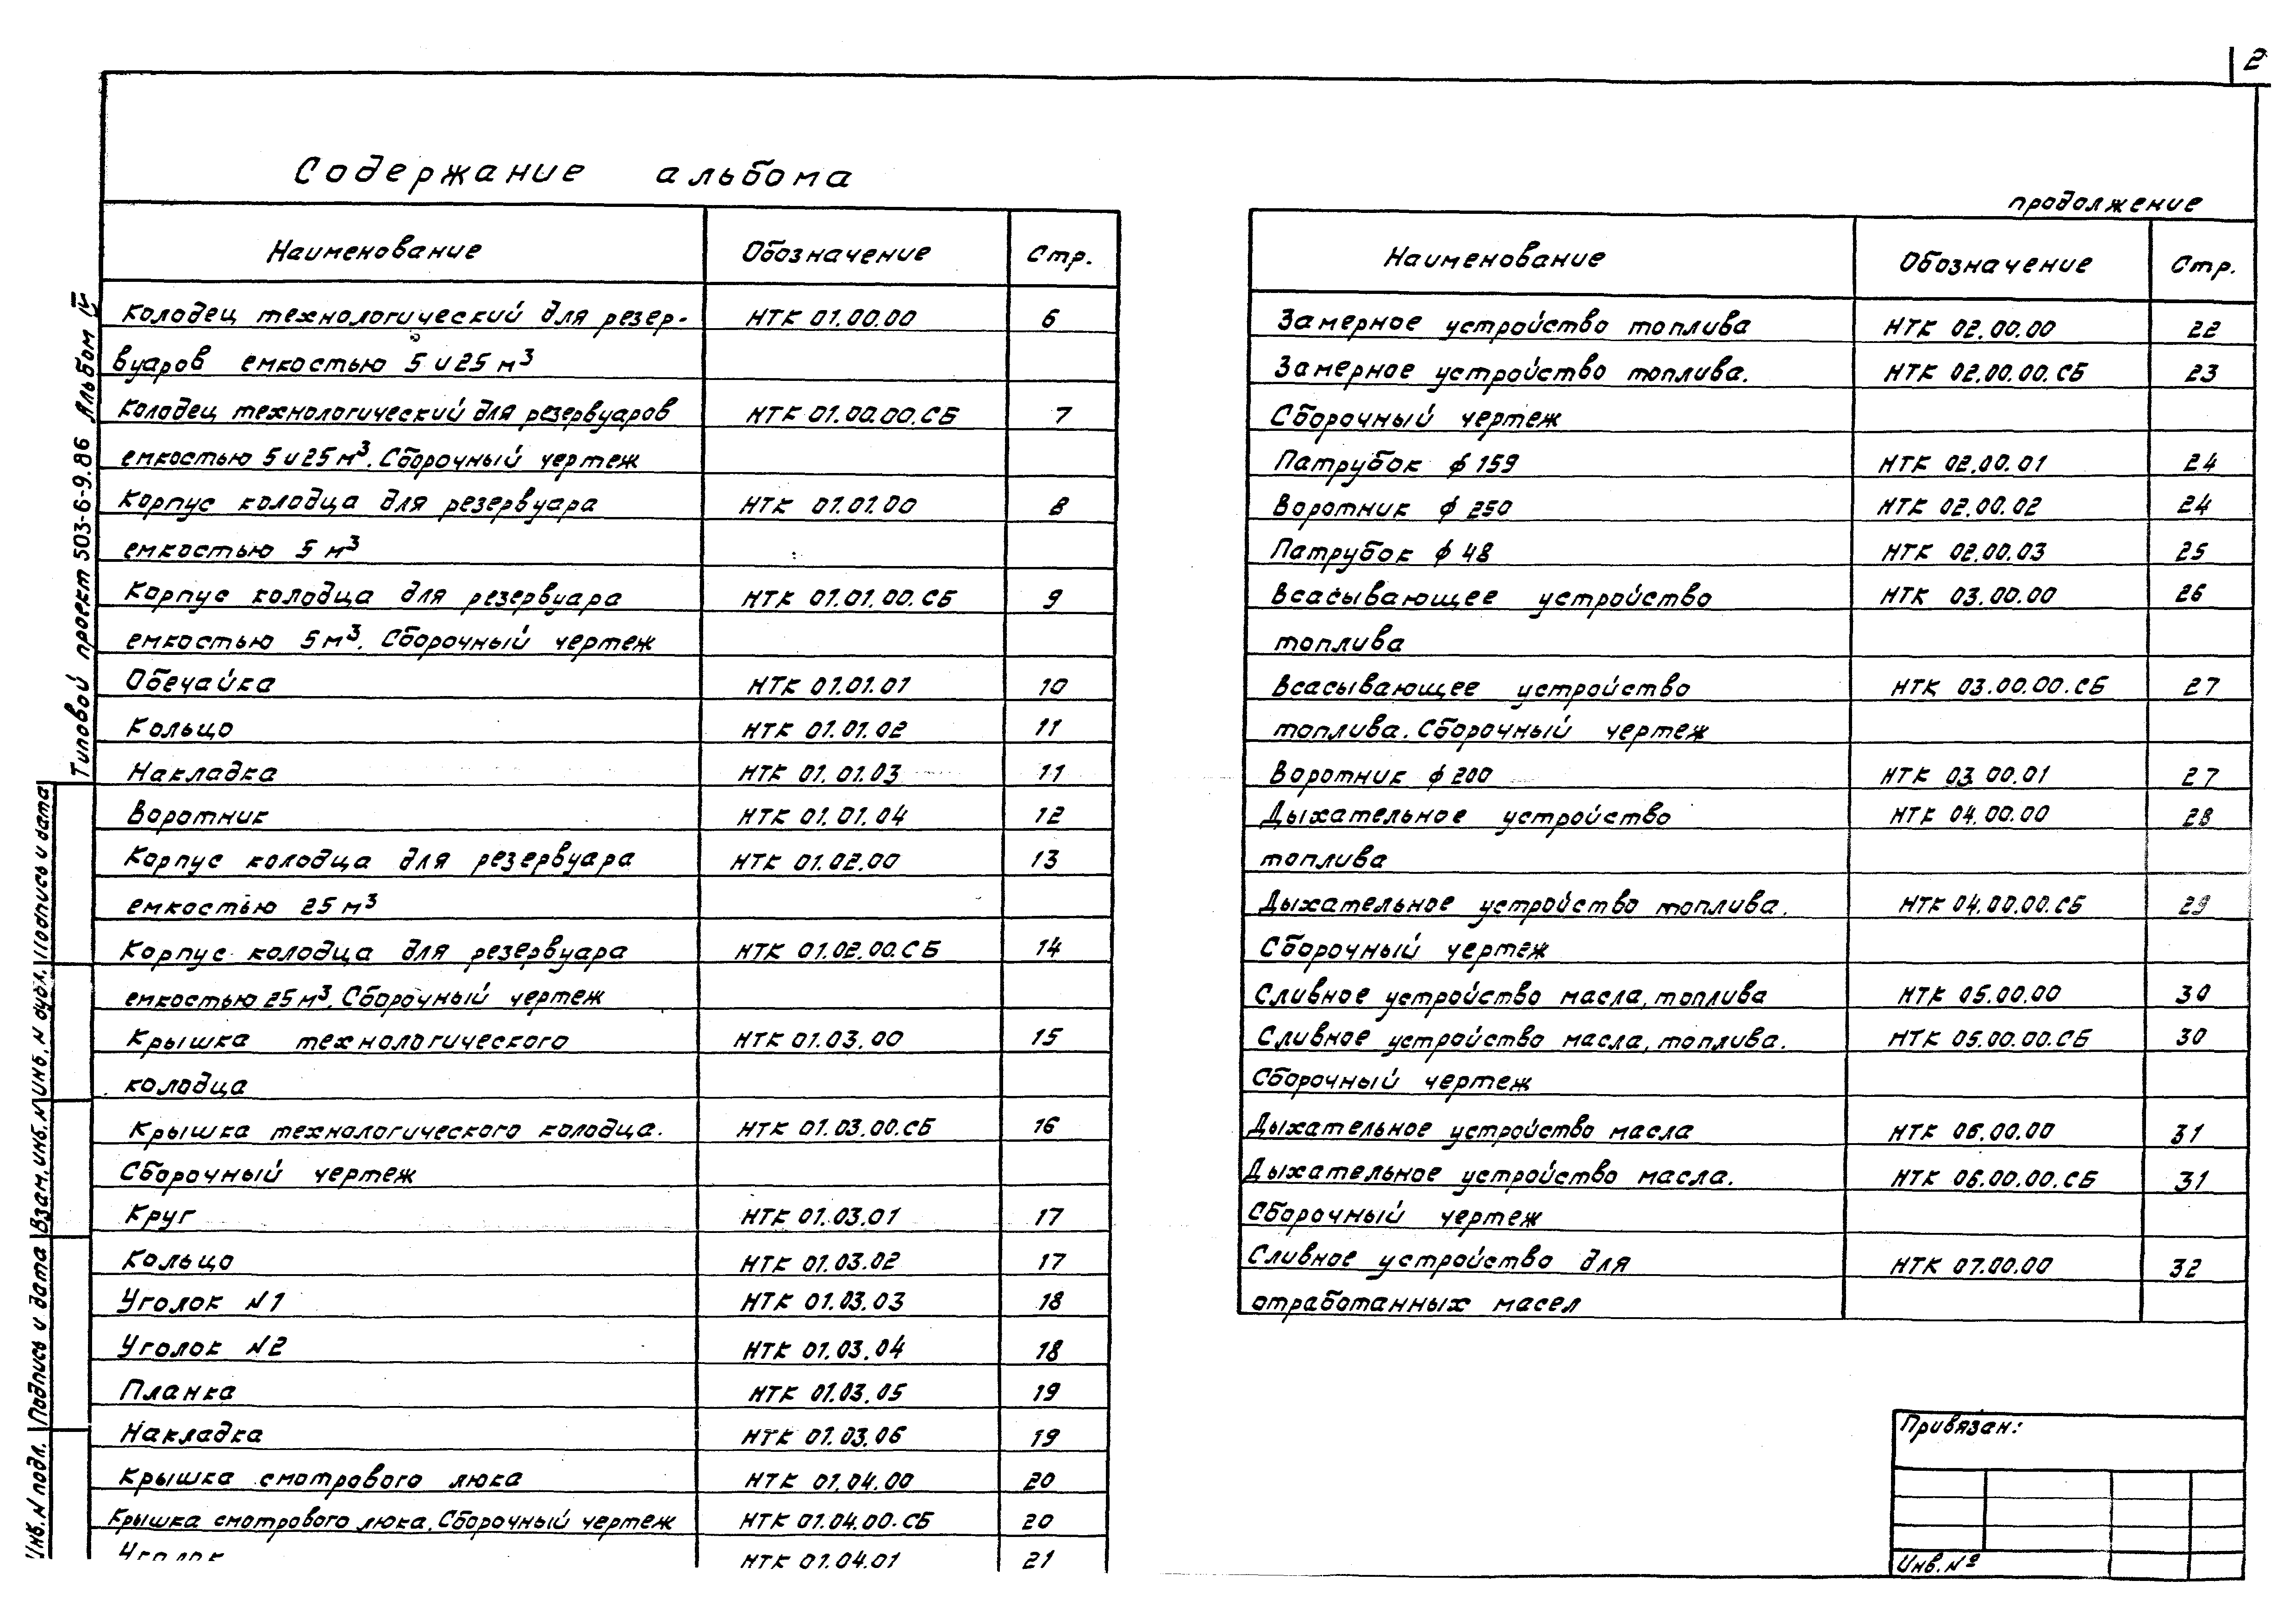 2
Содержание альбома
Наименование Обозначение Стр.
Колодец технологический для резер- НТК 01.00.00 6
вуаров емкостью 5 и 25 м³
Колодец технологический для резервуаров НТК 01.00.00.СБ 7
емкостью 5 и 25 м³. Сборочный чертеж
Корпус колодца для резервуара НТК 01.01.00 8
емкостью 5 м³
Корпус колодца для резервуара НТК 01.01.00.СБ 9
емкостью 5 м³. Сборочный чертеж
Обечайка НТК 01.01.01 10
Кольцо НТК 01.01.02 11
Накладка НТК 01.01.03 11
Воротник НТК 01.01.04 12
Корпус колодца для резервуара НТК 01.02.00 13
емкостью 25 м³
Корпус колодца для резервуара НТК 01.02.00.СБ 14
емкостью 25 м³. Сборочный чертеж
Крышка технологического НТК 01.03.00 15
колодца
Крышка технологического колодца. НТК 01.03.00.СБ 16
Сборочный чертеж
Круг НТК 01.03.01 17
Кольцо НТК 01.03.02 17
Уголок N1 НТК 01.03.03 18
Уголок N2 НТК 01.03.04 18
Планка НТК 01.03.05 19
Накладка НТК 01.03.06 19
Крышка смотрового люка НТК 01.04.00 20
Крышка смотрового люка. Сборочный чертеж НТК 01.04.00.СБ 20
Уголок НТК 01.04.01 21
продолжение
Наименование Обозначение Стр.
Замерное устройство топлива НТК 02.00.00 22
Замерное устройство топлива. НТК 02.00.00.СБ 23
Сборочный чертеж
Патрубок ф 159 НТК 02.00.01 24
Воротник ф 250 НТК 02.00.02 24
Патрубок ф 48 НТК 02.00.03 25
Всасывающее устройство НТК 03.00.00 26
топлива
Всасывающее устройство НТК 03.00.00.СБ 27
топлива. Сборочный чертеж
Воротник ф 200 НТК 03.00.01 27
Дыхательное устройство НТК 04.00.00 28
топлива
Дыхательное устройство топлива. НТК 04.00.00.СБ 29
Сборочный чертеж
Сливное устройство масла, топлива НТК 05.00.00 30
Сливное устройство масла, топлива. НТК 05.00.00.СБ 30
Сборочный чертеж
Дыхательное устройство масла НТК 06.00.00 31
Дыхательное устройство масла. НТК 06.00.00.СБ 31
Сборочный чертеж
Сливное устройство для НТК 07.00.00 32
отработанных масел
Привязан:
Инв. №
Типовой проект 503-6-9.86 Альбом IV
Инв. N подл. Подпись и дата Взам. инв. N Инв. N дубл. Подпись и дата